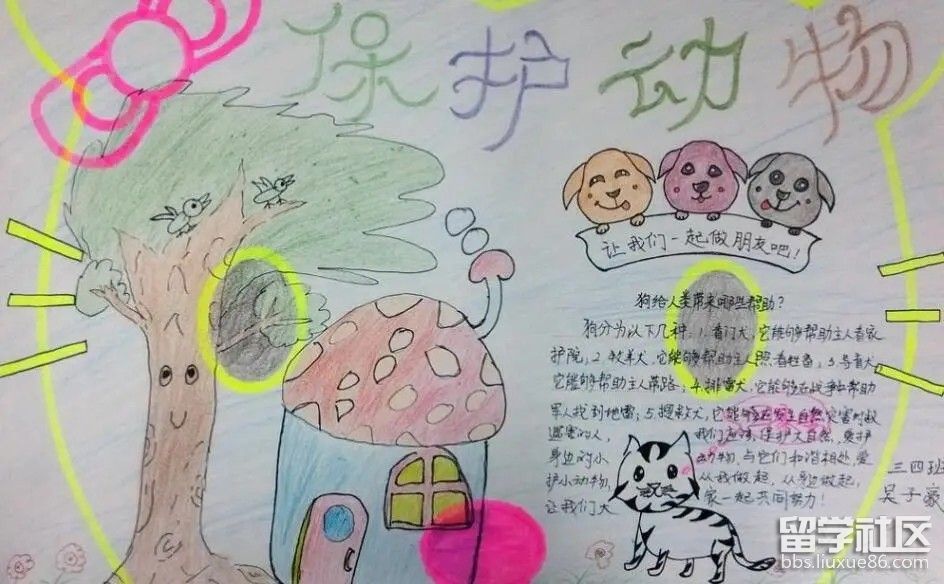 保护动物
让我们一起做朋友吧!
狗给人类带来哪些帮助?
狗分为以下几种:1.看门犬,它能够帮助主人看家
护院;2.牧羊犬,它能够帮助主人照看牲畜;3.导盲犬,
它能够帮助主人带路;4.排雷犬,它能够在战争中帮助
军人找到地雷;5.搜救犬,它能够在发生自然灾害时救
遇害的人,我们应该保护大自然,爱护
身边的小动物,与它们和谐相处,爱
护小动物,从我做起,从身边做起,
让我们大家一起共同努力!
三四班
吴子豪
留学社区
bbs.liuxue86.com